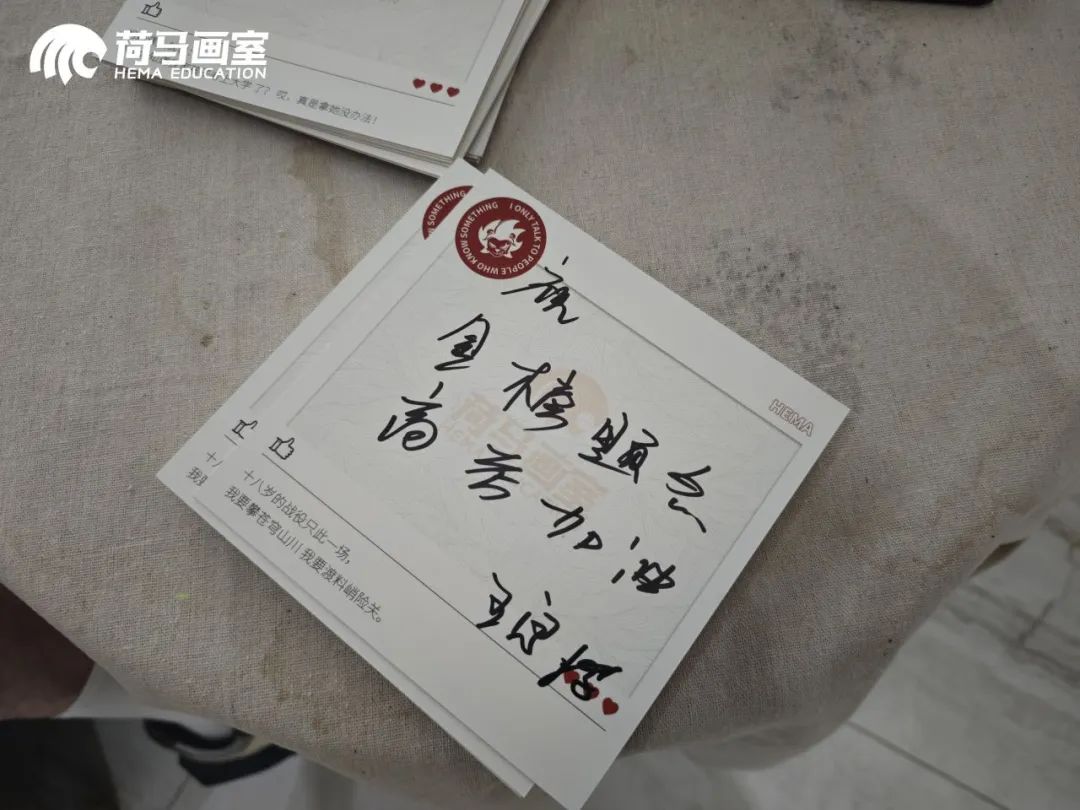 荷马画室
HEMA EDUCATION
大学了？哎，真是拿她没办法！
SOMETHING
I ONLY TALK TO PEOPLE WHO KNOW SOMETHING
HEMA
祝
金榜题名
高考加油
荷马画室
十八岁的战役只此一场，
我要攀苍穹山川 我要渡料峭险关。
十八
我要